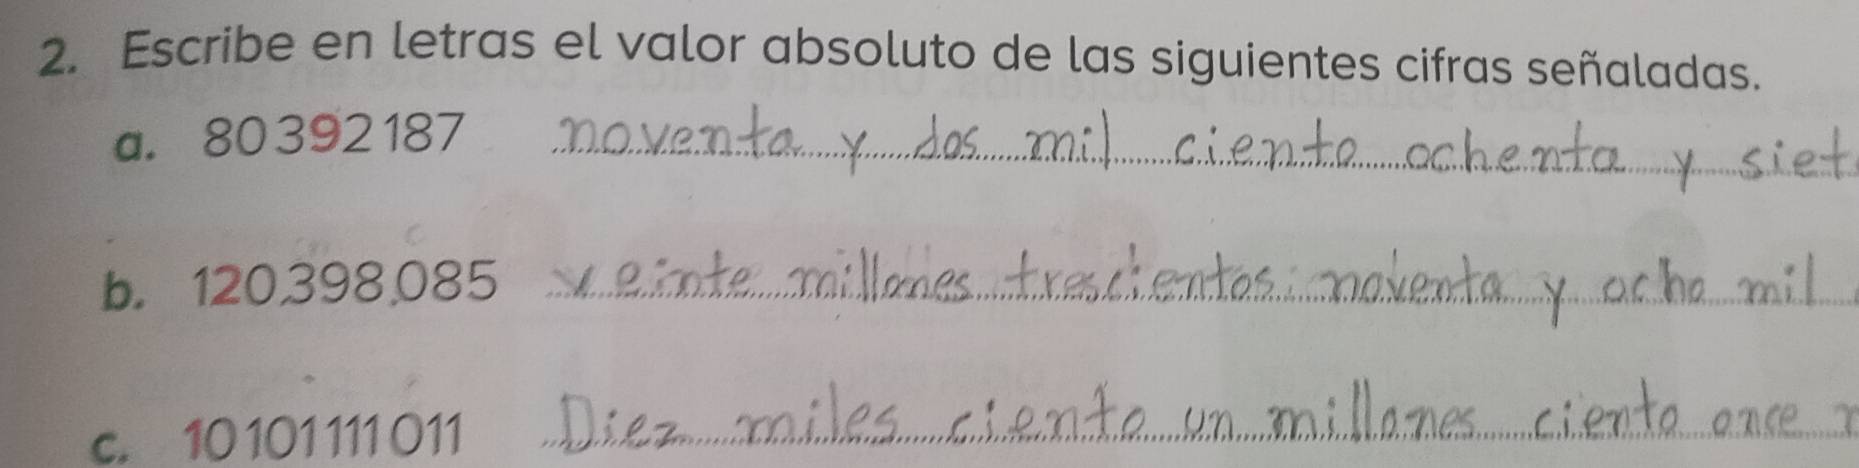 2. Escribe en letras el valor absoluto de las siguientes cifras señaladas.
a. 80392187 noventa y dos mil ciento ochenta y siet
b. 120,398,085 veinte millones trescientos noventa y ocho mil
c. 10101111011 Diez miles ciento un millones ciento once